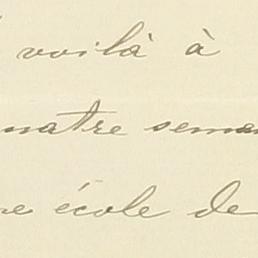 voilà à
uatre sema
re école de